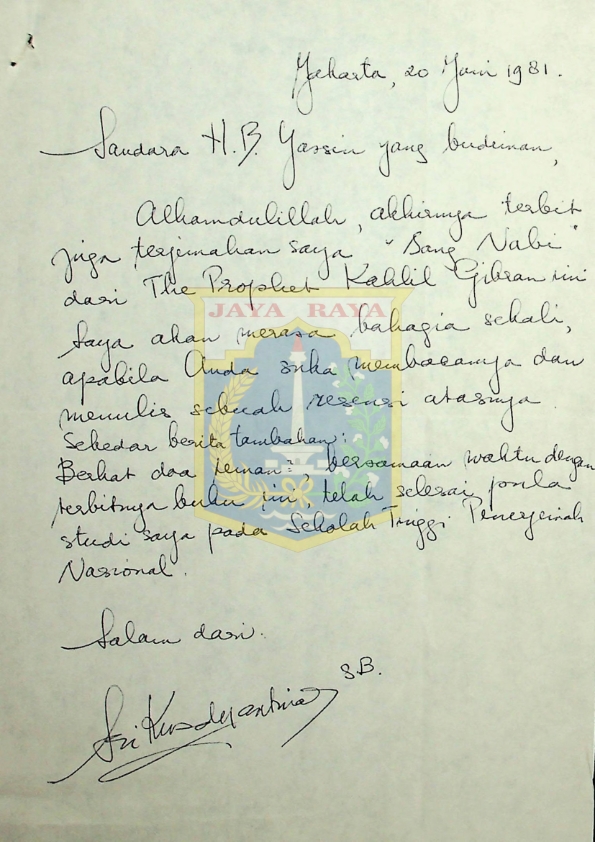 Jakarta, 20 Juni 1981.
Saudara H.B. Yassin yang budiman,
Alhamdulillah, akhirnya terbit
juga terjemahan saya "Sang Nabi"
dari The Prophet Kahlil Gibran ini
Saya akan merasa bahagia sekali,
apabila Anda suka membacanya dan
menulis sebuah resensi atasnya.
Sekedar berita tambahan:
Berkat doa teman², bersamaan waktu dengan
terbitnya buku ini, telah selesai pula
studi saya pada Sekolah Tinggi Penerjemah
Nasional.
Salam dari:
S.B.
Sri Kusdyantinah
JAYA RAYA